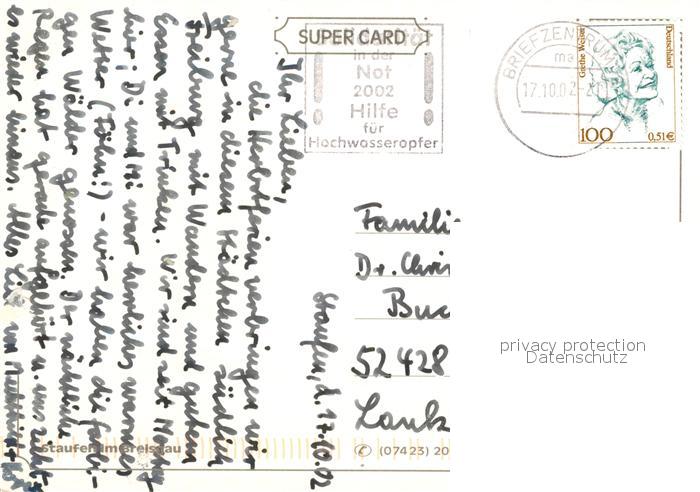 SUPER CARD
in der
Not
2002
Hilfe
für
Hochwasseropfer
BRIEFZENTRUM
17.10.02-21
Grethe Weiser
Deutschland
100
0,51€
Staufen, d. 17.10.02
Ihr Lieben,
die Herbstferien verbringen wir
gerne in diesem Städtchen südlich
Freiburg mit Wandern und gutem
Essen mit Trinken. Wir sind seit Montag
hier; Di und Mi war herrliches warmes
Wetter (Föhn!) - wir haben die farbi-
gen Wälder genossen. Der nächtliche
Regen hat gerade aufgehört u. nun zieht
es wieder hinaus. Alles Liebe von
Famili
Dr. Chri
Buc
52428
privacy protection
Datenschutz
Staufen im Breisgau
(07423) 20